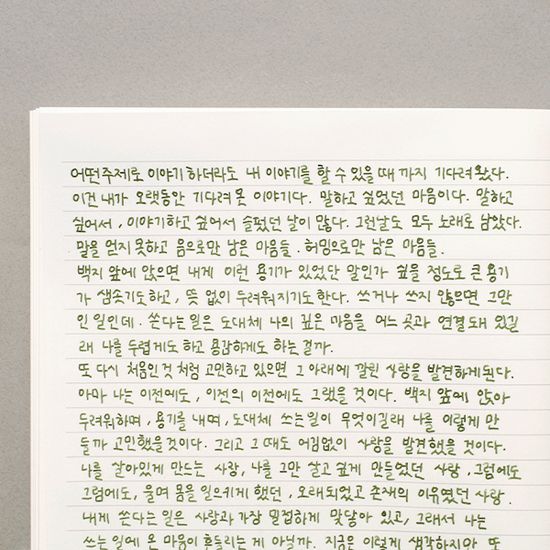 어떤주제로 이야기 하더라도 내 이야기를 할 수 있을 때 까지 기다려왔다.
이건 내가 오랫동안 기다려온 이야기다. 말하고 싶었던 마음이다. 말하고
싶어서, 이야기하고 싶어서 슬펐던 날이 많다. 그런날도 모두 노래로 남았다.
말을 얻지 못하고 음으로만 남은 마음들. 허밍으로만 남은 마음들.
백지 앞에 앉으면 내게 이런 용기가 있었단 말인가 싶을 정도로 큰 용기
가 샘솟기도하고, 뜻 없이 두려워지기도한다. 쓰거나 쓰지 않으면 그만
인 일인데. 쓴다는 일은 도대체 나의 깊은 마음을 어느 곳과 연결돼 있길
래 나를 두렵게도 하고 용감하게도 하는 걸까.
또 다시 처음인것 처럼 고민하고 있으면 그 아래에 깔린 사랑을 발견하게된다.
아마 나는 이전에도, 이전의 이전에도 그랬을 것이다. 백지 앞에 앉아
두려워하며, 용기를 내며, 도대체 쓰는일이 무엇이길래 나를 이렇게 만
들까 고민했을것이다. 그리고 그 때도 어김없이 사랑을 발견했을 것이다.
나를 살아있게 만드는 사랑, 나를 그만 살고 싶게 만들었던 사랑, 그럼에도
그럼에도, 울며 몸을 일으키게 했던, 오래되었고 존재의 이유였던 사랑.
내게 쓴다는 일은 사랑과 가장 밀접하게 맞닿아 있고, 그래서 나는
쓰는 일에 온 마음이 흔들리는 게 아닐까. 지금은 이렇게 생각하지만 또